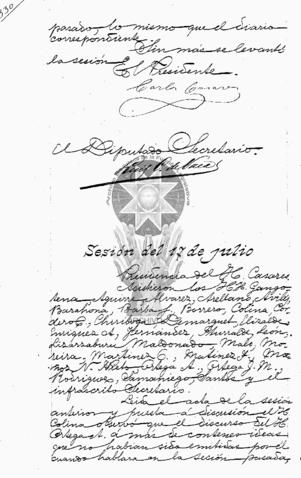 330
parado, lo mismo que el diario
correspondiente.
Sin más se levantó
la sesión.
El Presidente.
Carlos Casares
El Diputado Secretario.
Sesión del 17 de julio
Presidencia del H. Casares
Asistieron los HH. Gango-
tena, Aguirre, Alvarez, Arellano, Avilés,
Barahona, Borrero, Colina, Cor-
dero C., Chiriboga, Demarquet,
Enríquez A., Fernández, León,
Lizarzaburu, Maldonado, Malo, Mo-
reira, Martínez C., Matínez J.,
N., Ortega A., Ortega J. M.,
Rodríguez, Samaniego, Santos y el
infrascrito Secretario.
Leída el acta de la sesión
anterior y puesta á discusión el H.
Colina observó que el discurso del H.
Ortega A. á más de contener ideas
que no habían sido emitidas por él
cuando hablara en la sesión pasada,